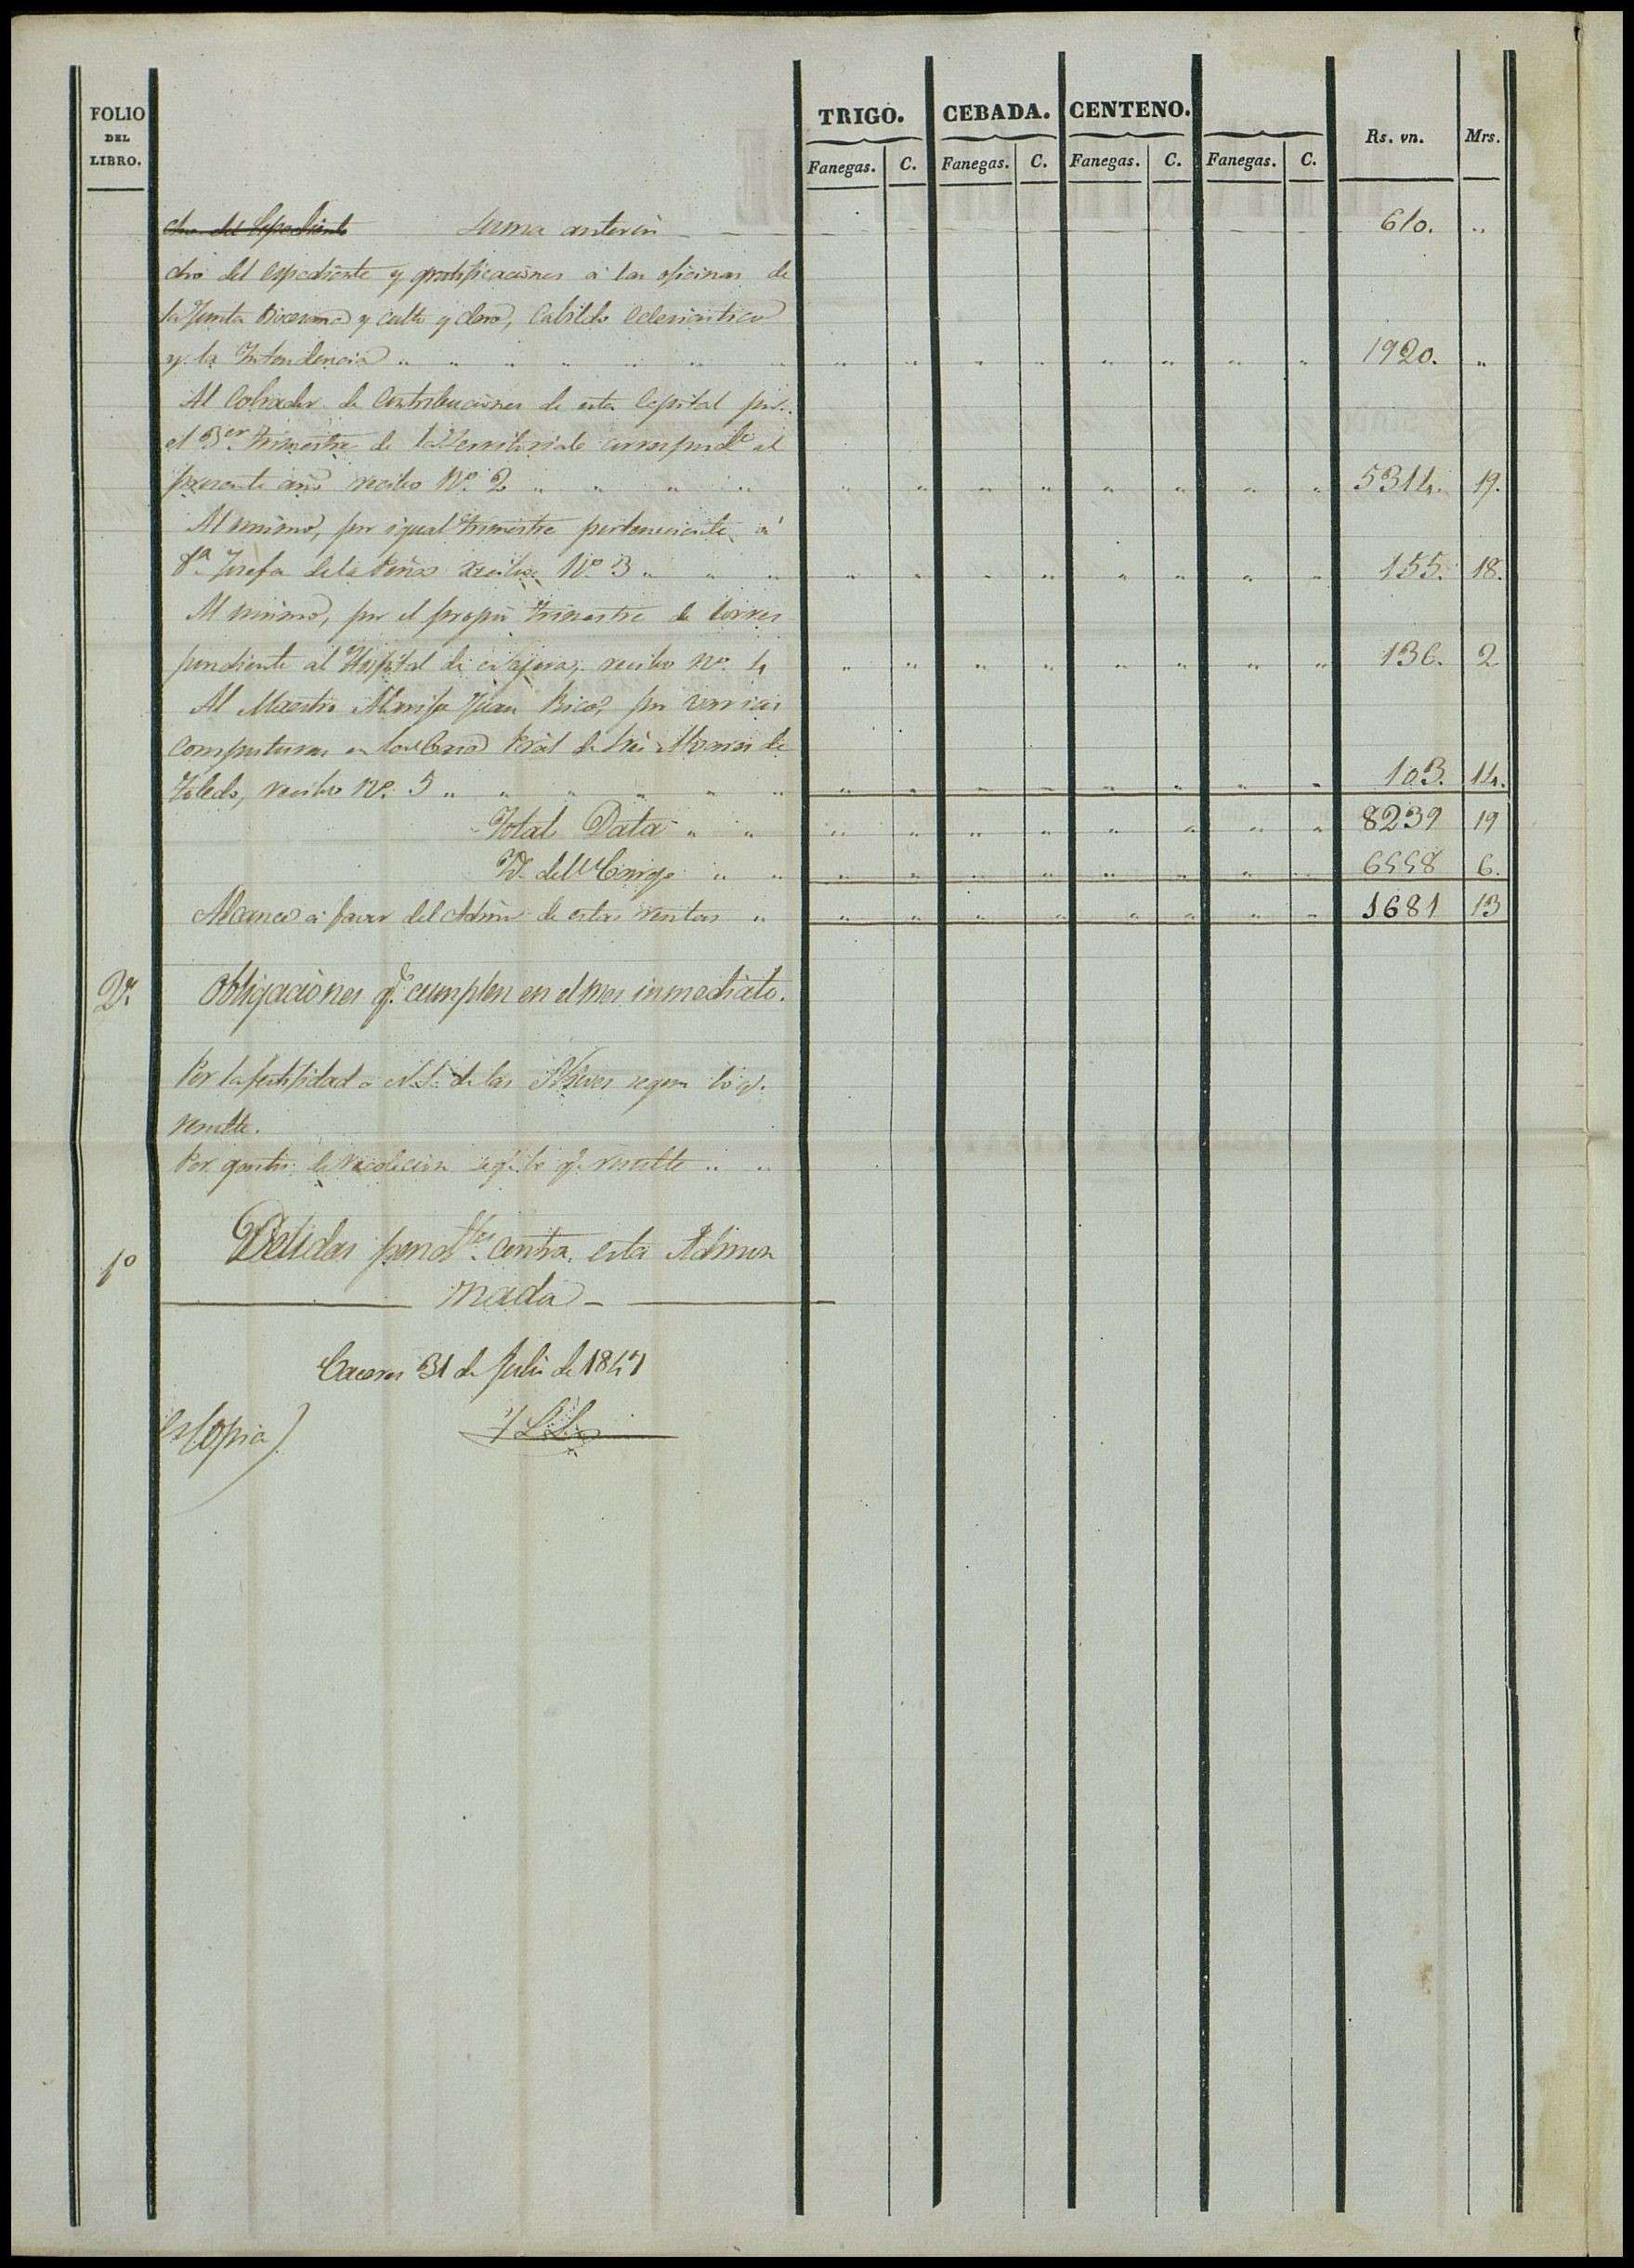 FOLIO DEL LIBRO.
TRIGO. CEBADA. CENTENO.
Fanegas. C. Fanegas. C. Fanegas. C. Fanegas. C. Rs. vn. Mrs.
Suma anterior 610. "
cho del expediente y gratificaciones á las oficinas de
la Junta Diocesana y culto y clero, Cabildo Eclesiastico
y la Intendencia 1920. "
Al Cobrador de Contribuciones de esta Capital por
el 3er trimestre de la Territorial al
presente año recibo Nº 2 5314. 19.
Al mismo, por igual trimestre perteneciente á
Dª Josefa de la Peña recibo Nº 3 155. 18.
Al mismo, por el propio trimestre de corres
pondiente al Hospital de recibo Nº 4 136. 2
Al Maestro Alarife Juan Rico, por varias
composturas en la Casa de
Toledo, recibo Nº 5 103. 14.
Total Data 8239 19
Yd. del Cargo 6558 6.
Alcance á favor del Admor de estas rentas 1681 13
2º Obligaciones q.e cumplen en el mes inmediato.
Por la festividad á N. S. de las Nieves segun lo q.
resulte.
Por gastos de recoleccion seg.n lo q. resulte
1º pend.tes contra esta Admon
nada
Caceres 31 de Julio de 1847
Es copia)